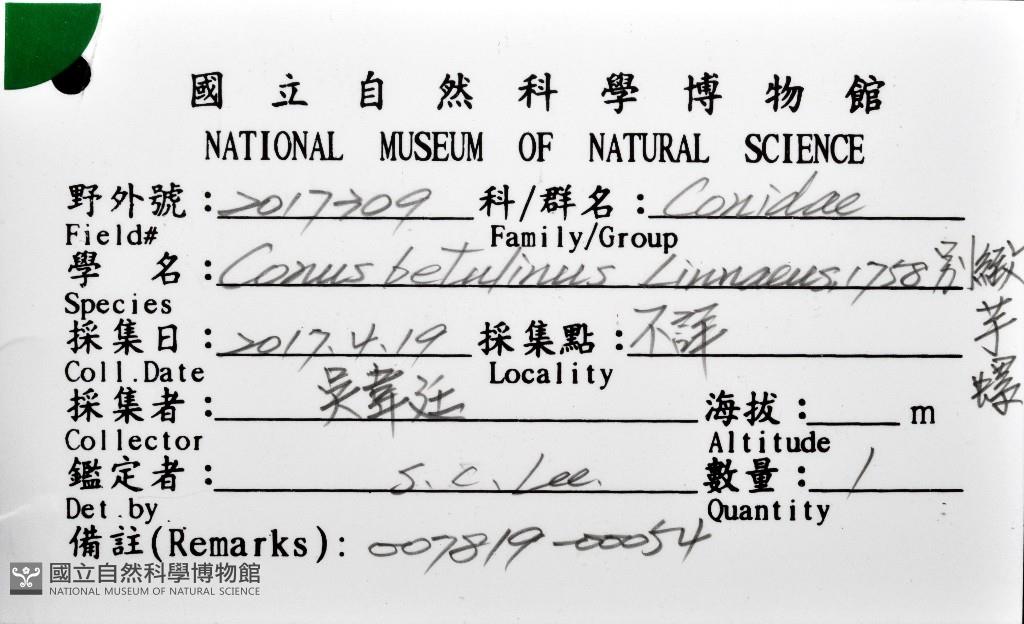 國立自然科學博物館
NATIONAL MUSEUM OF NATURAL SCIENCE
野外號：2017309 科/群名：Conidae
Field# Family/Group
學名：Conus betulinus Linnaeus, 1758 別緻芋螺
Species
採集日：2017.4.19 採集點：不詳
Coll.Date Locality
採集者：吳韋廷 海拔： m
Collector Altitude
鑑定者：S. C. Lee. 數量：1
Det.by Quantity
備註(Remarks): 007819-00054
國立自然科學博物館
NATIONAL MUSEUM OF NATURAL SCIENCE